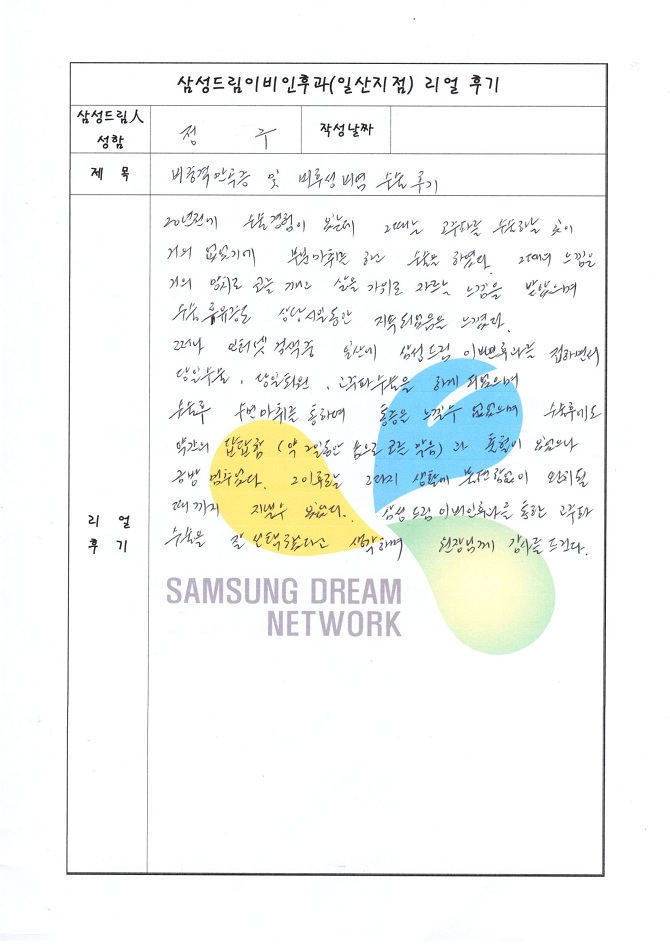 삼성드림이비인후과(일산지점) 리얼 후기
삼성드림人
성함
정 우
작성날짜
제 목
비중격만곡증 및 비후성비염 수술 후기
리 얼
후 기
20년전에 수술경험이 있는데 그때는 고주파를 수술하는 곳이
거의 없었기에 부분마취를 하고 수술을 하였다. 그때의 느낌은
거의 망치로 코를 깨고 살을 가위로 자르는 느낌을 받았으며
수술 후유증도 상당시일동안 지속되었음을 느꼈다.
그러나 인터넷 검색중 일산에 삼성드림 이비인후과를 접하면서
당일수술, 당일퇴원, 고주파수술을 하게 되었으며
수술후 수면마취를 통하여 통증을 느낄수 없었으며 수술후에도
약간의 답답함 (약 2일동안 솜으로 코를 막음)과 출혈이 있었으나
금방 멈추었다. 그이후로는 그다지 생활에 불편함없이 완치될
때까지 지낼수 있었다. 삼성드림이비인후과를 통한 고주파
수술을 잘 선택하였다고 생각하며 원장님께 감사를 드린다.
SAMSUNG DREAM
NETWORK